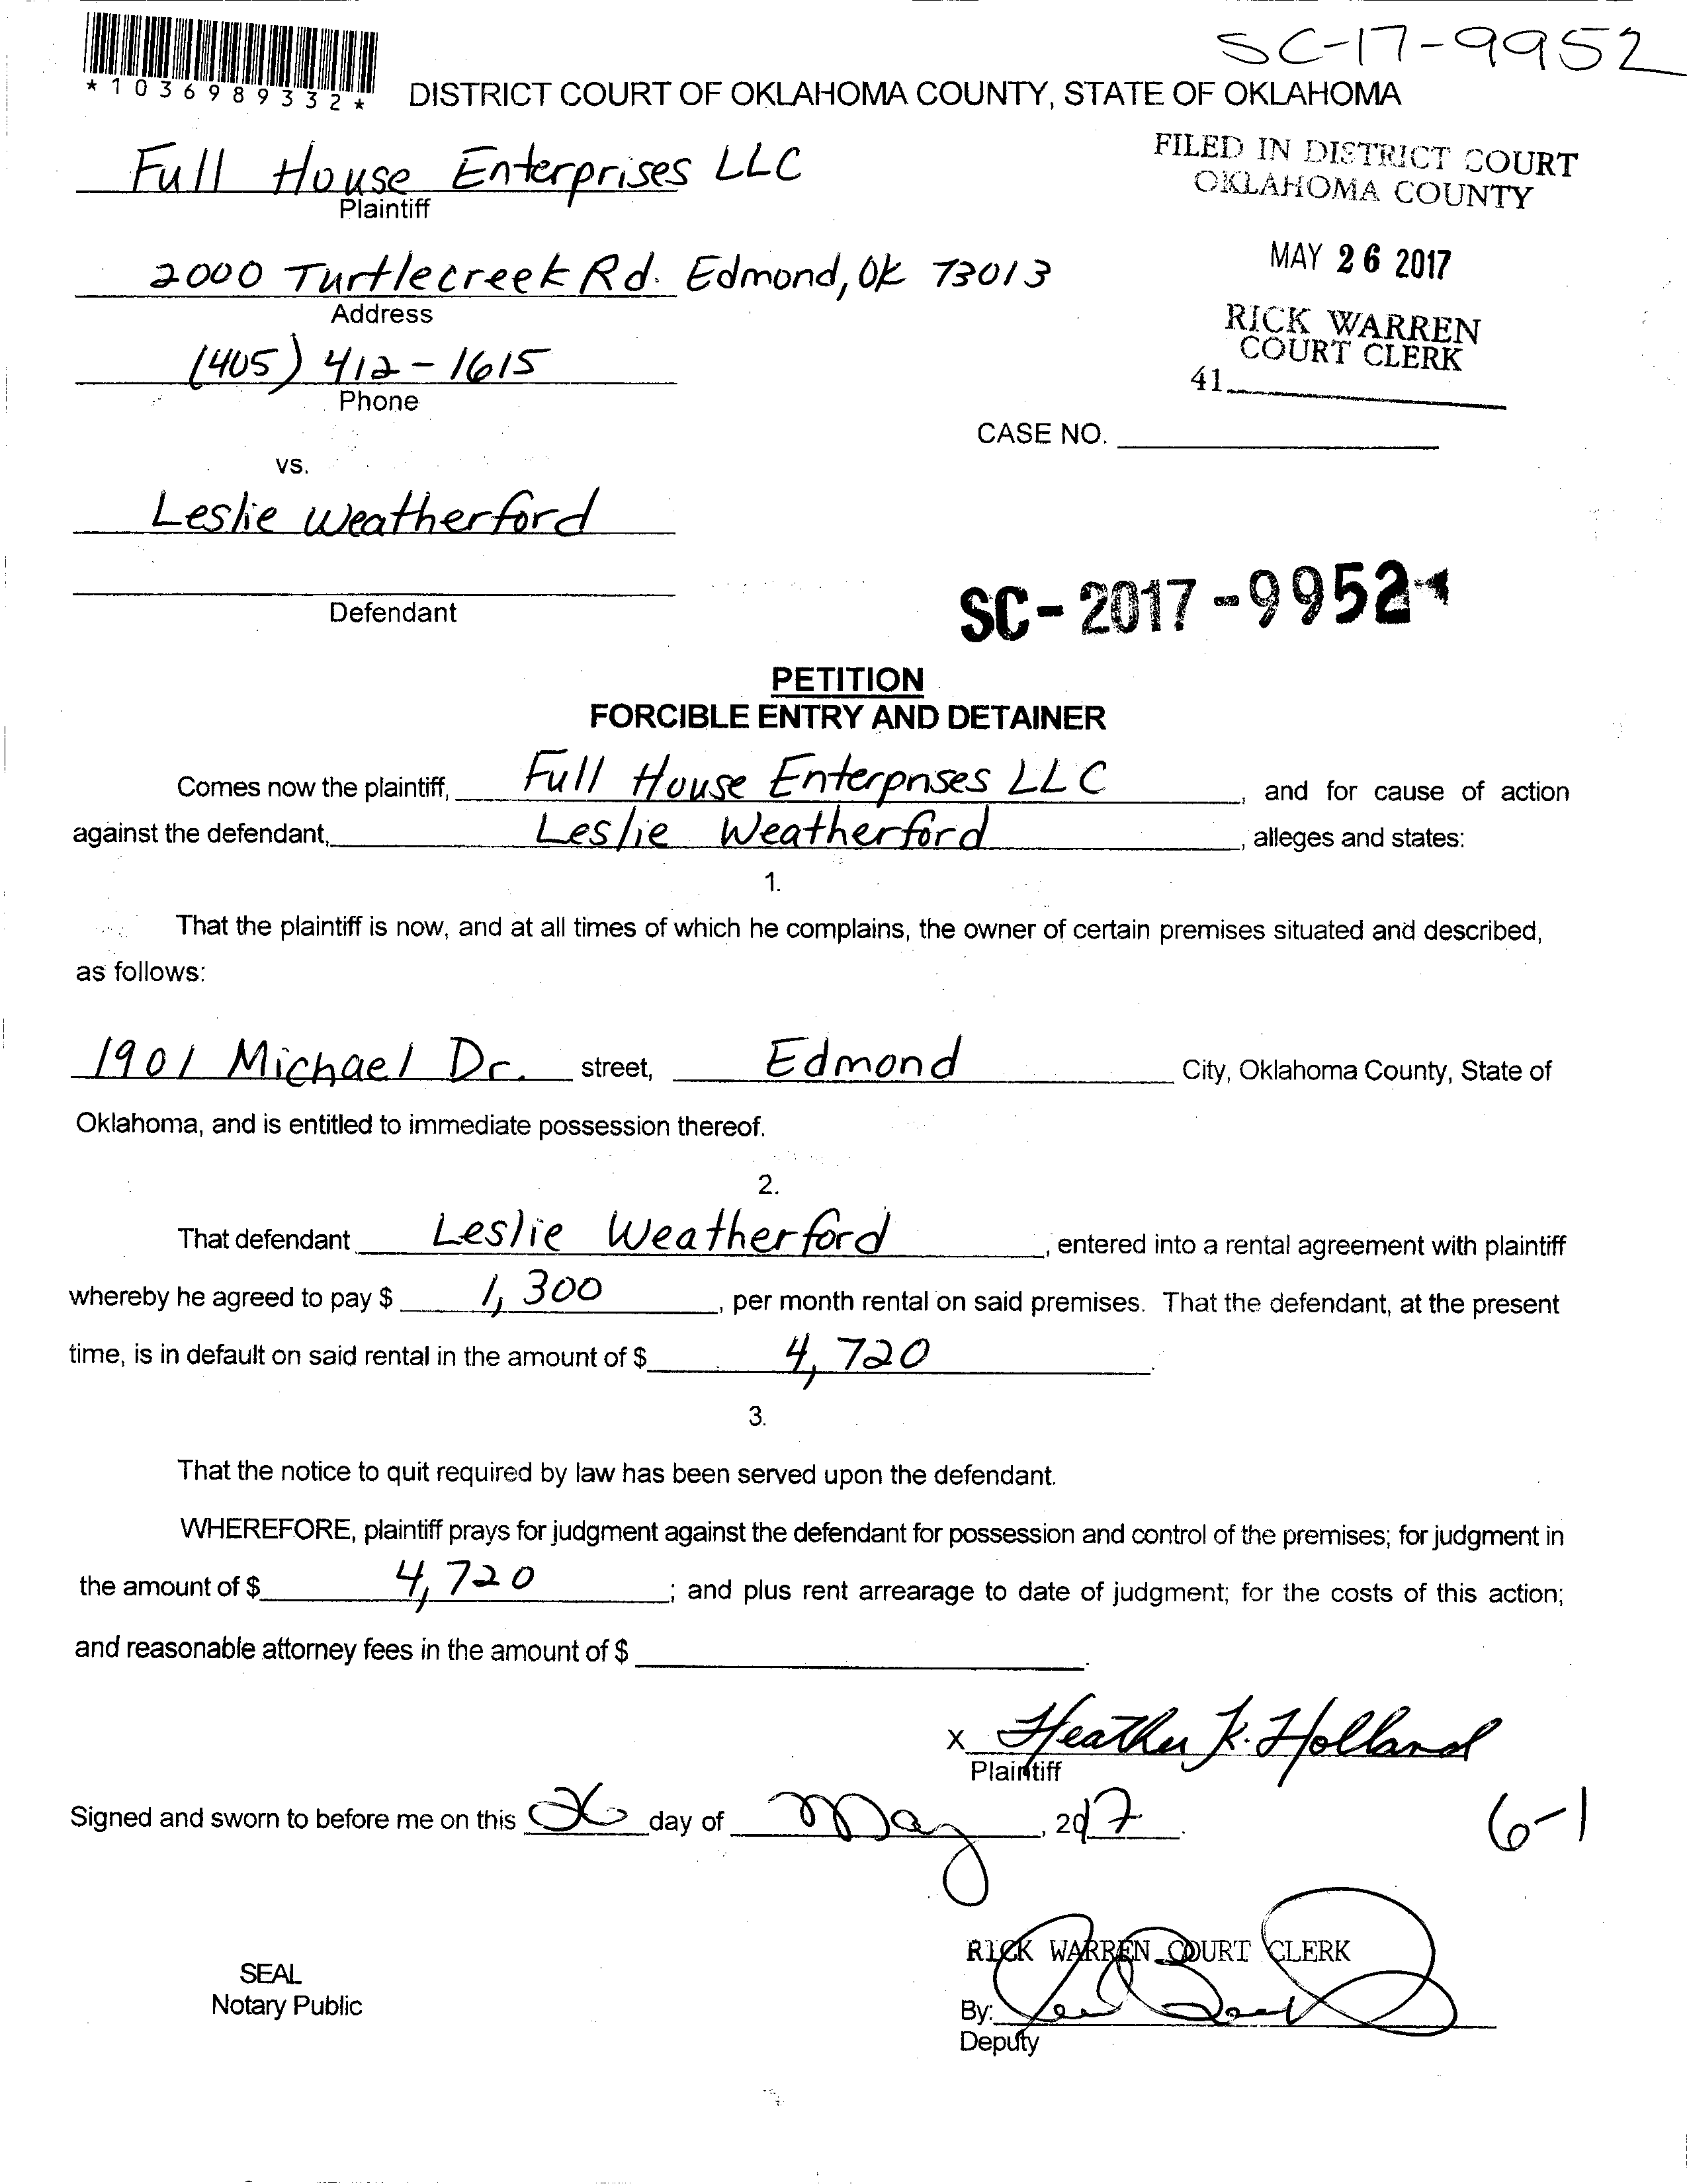 SC-17-9952
*1036989332*
DISTRICT COURT OF OKLAHOMA COUNTY, STATE OF OKLAHOMA
Full House Enterprises LLC
Plaintiff
FILED IN DISTRICT COURT
OKLAHOMA COUNTY
2000 Turtlecreek Rd. Edmond, OK 73013
Address
MAY 26 2017
(405) 412-1615
Phone
RICK WARREN
COURT CLERK
41
CASE NO.
vs.
Leslie Weatherford
Defendant
SC-2017-9952
PETITION
FORCIBLE ENTRY AND DETAINER
Comes now the plaintiff, Full House Enterprises LLC, and for cause of action
against the defendant, Leslie Weatherford, alleges and states:
1.
That the plaintiff is now, and at all times of which he complains, the owner of certain premises situated and described,
as follows:
1901 Michael Dr. street, Edmond City, Oklahoma County, State of
Oklahoma, and is entitled to immediate possession thereof.
2.
That defendant Leslie Weatherford, entered into a rental agreement with plaintiff
whereby he agreed to pay $ 1,300, per month rental on said premises. That the defendant, at the present
time, is in default on said rental in the amount of $ 4,720.
3.
That the notice to quit required by law has been served upon the defendant.
WHEREFORE, plaintiff prays for judgment against the defendant for possession and control of the premises; for judgment in
the amount of $ 4,720; and plus rent arrearage to date of judgment; for the costs of this action;
and reasonable attorney fees in the amount of $ .
X Heather K. Holland
Plaintiff
Signed and sworn to before me on this 26 day of May, 2017.
6-1
RICK WARREN COURT CLERK
SEAL
Notary Public
By:
Deputy